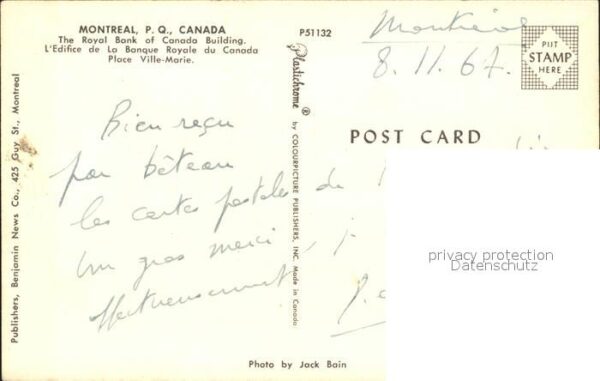 MONTREAL, P. Q., CANADA
The Royal Bank of Canada Building.
L'Edifice de La Banque Royale du Canada
Place Ville-Marie.
P51132
Montréal
8.11.67.
PUT
STAMP
HERE
POST CARD
Bien reçu
par bateau
les cartes postales de
Un gros merci
Affectueusement
Plastichrome ® by COLOURPICTURE PUBLISHERS, INC. Made in Canada
Publishers, Benjamin News Co., 425 Guy St., Montreal
privacy protection
Datenschutz
Photo by Jack Bain